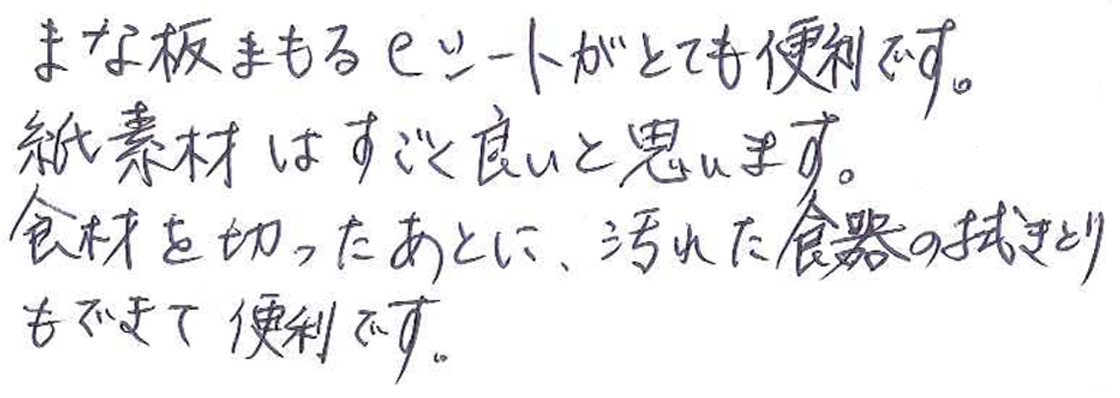 まな板まもるeシートがとても便利です。
紙素材はすごく良いと思います。
食材を切ったあとに、汚れた食器の拭きとり
もできて便利です。